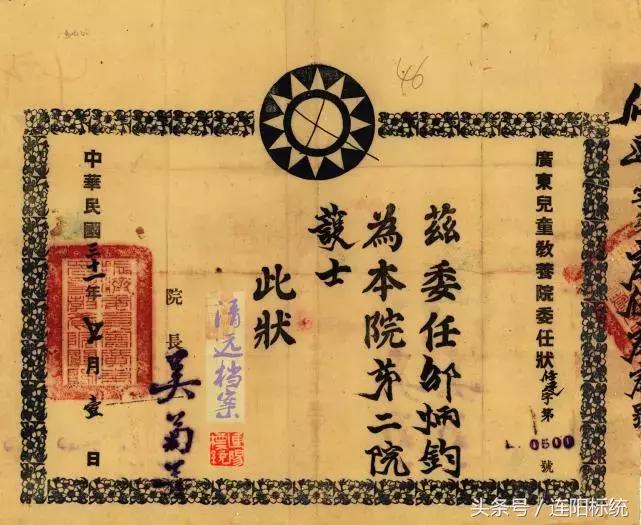 46
廣東兒童教養院委任狀
字第 0500 號
茲委任邹炳鈞
為本院第二院
護士
此狀
院長 吳菊芳
中華民國三十一年 月壹日
清远档案
連陽標統
头条号 / 连阳标统